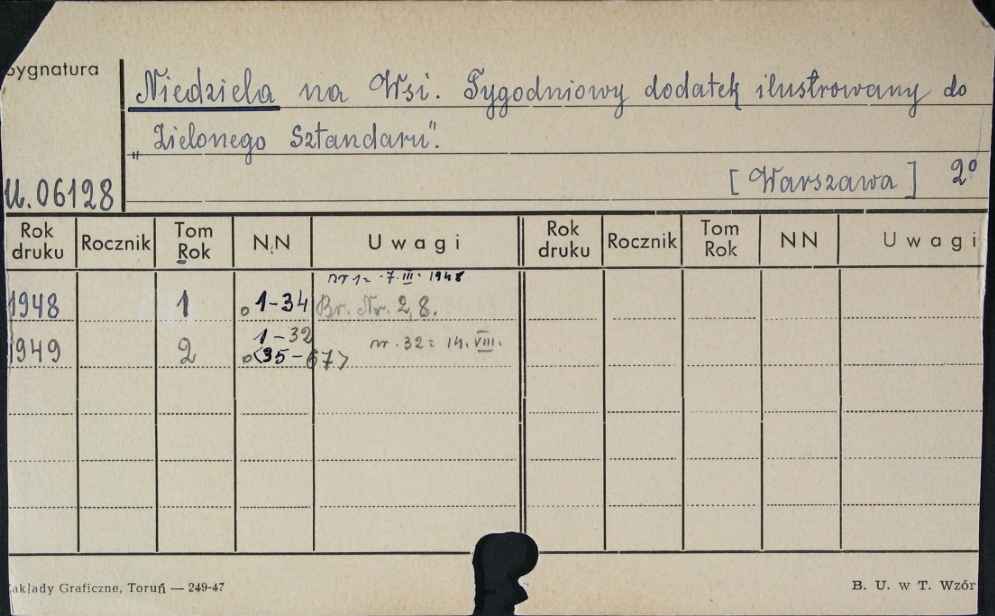 Sygnatura
Niedziela na Wsi. Tygodniowy dodatek ilustrowany do
„Zielonego Sztandaru".
[Warszawa] 2°
U.06128
Rok druku Rocznik Tom Rok N.N Uwagi Rok druku Rocznik Tom Rok NN Uwagi
nr 1 = 7.III. 1948
1948 1 o 1-34 Br. Nr. 2, 8.
1-32
1949 2 o <35-67> nr. 32 = 14. VIII.
akłady Graficzne, Toruń — 249-47 B. U. w T. Wzór